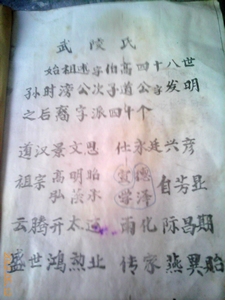 武陵氏
始祖遗字伯高四十八世
孙时滂公次子道公字发明
之后裔字派四十个
道汉景文思 仕永廷兴彦
祖宗高明贻 德自芳显
弘 泽
云腾开太运 雨化际昌期
盛世鸿勲业 传家燕異贻